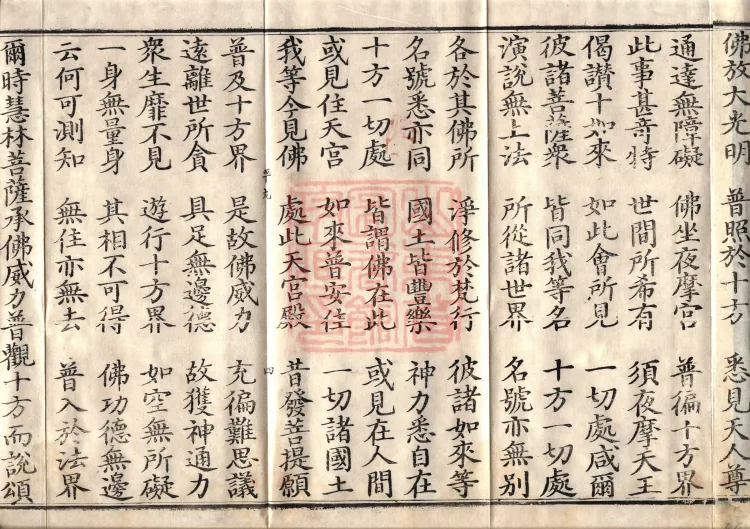 佛放大光明 普照於十方 悉見天人尊
通達無障礙 佛坐夜摩宮 普徧十方界
此事甚奇特 世間所希有 須夜摩天王
偈讚十如來 如此會所見 一切處咸爾
彼諸菩薩衆 皆同我等名 十方一切處
演說無上法 所從諸世界 名號亦無別
各於其佛所 淨修於梵行 彼諸如來等
名號悉亦同 國土皆豐樂 神力悉自在
十方一切處 皆謂佛在此 或見在人間
或見住天宮 如來普安住 一切諸國土
我等今見佛 處此天宮殿 昔發菩提願
普及十方界 是故佛威力 充徧難思議
遠離世所貪 具足無邊德 故獲神通力
衆生靡不見 遊行十方界 如空無所礙
一身無量身 其相不可得 佛功德無邊
云何可測知 無住亦無去 普入於法界
爾時慧林菩薩承佛威力普觀十方而說頌